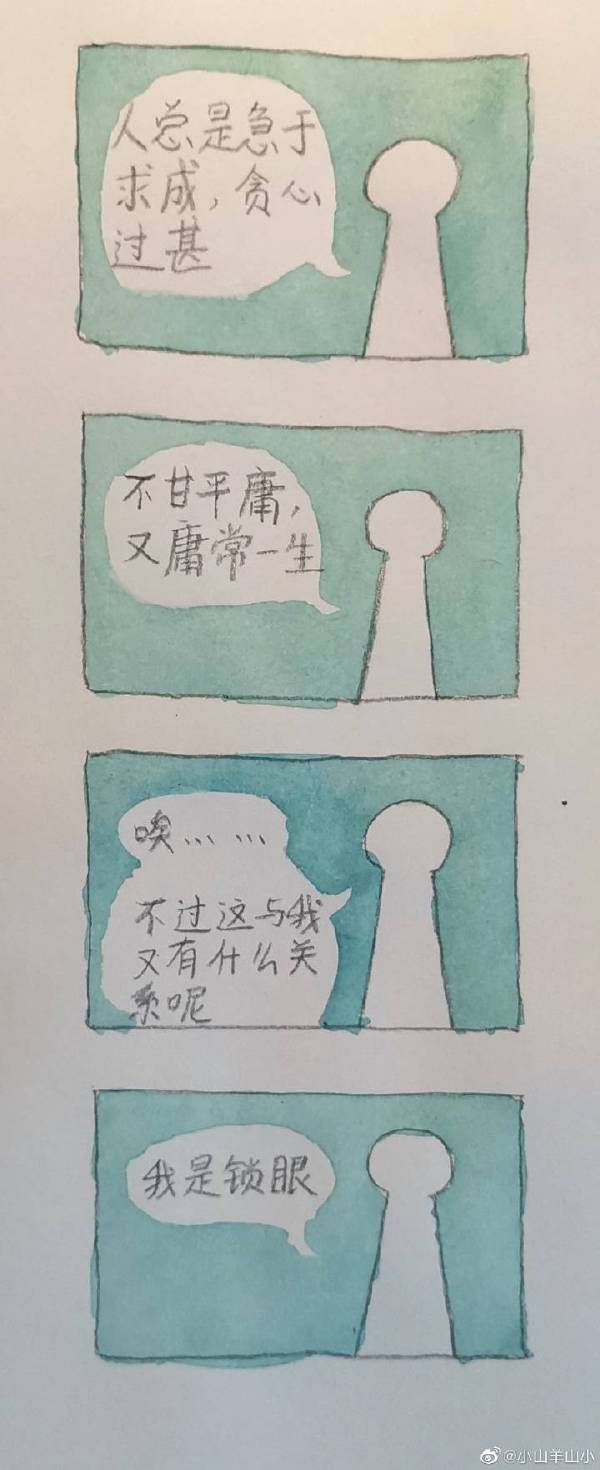 人总是急于
求成，贪心
过甚
不甘平庸，
又庸常一生
唉……
不过这与我
又有什么关
系呢
我是锁眼
@小山羊山小